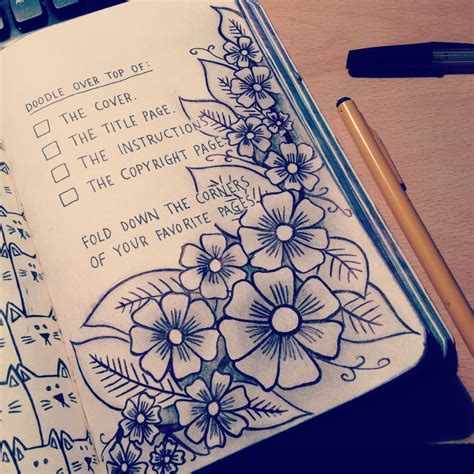 DOODLE OVER TOP OF:
THE COVER.
THE TITLE PAGE.
THE INSTRUCTIONS.
THE COPYRIGHT PAGE.
FOLD DOWN THE CORNERS
OF YOUR FAVORITE PAGES!